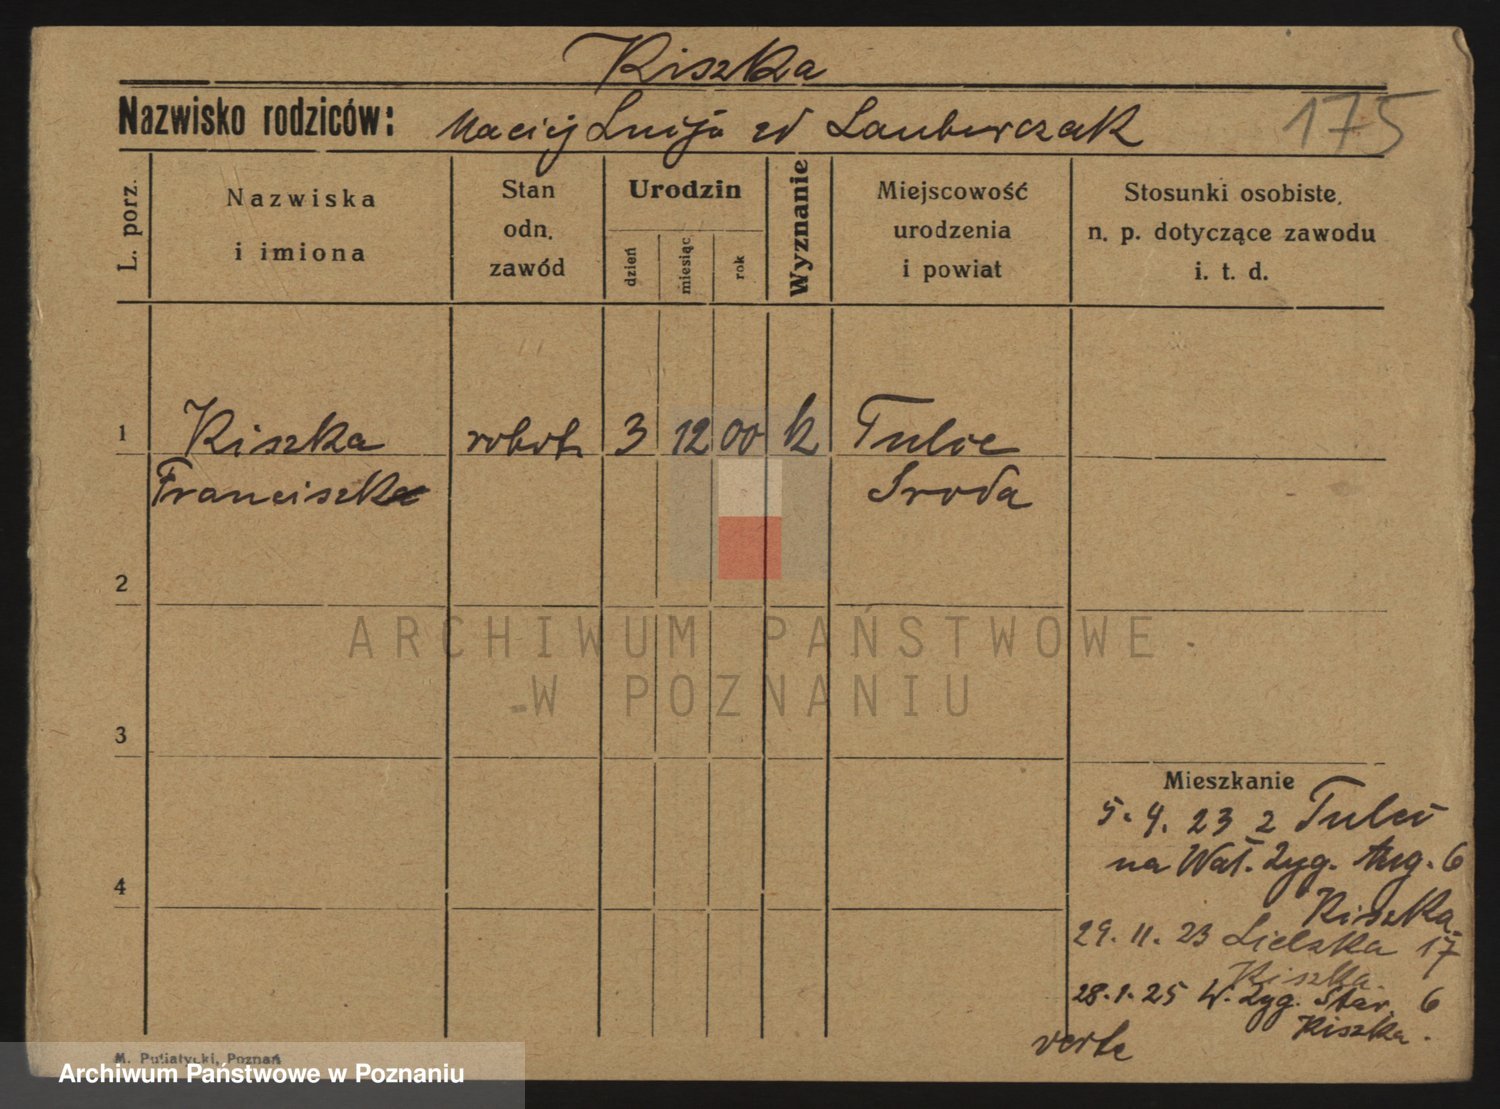 Kiszka
Nazwisko rodziców: Maciej Łucja zd Lauberczak
175
L. porz.
Nazwiska
i imiona
Stan
odn.
zawód
Urodzin
dzień
miesiąc
rok
Wyznanie
Miejscowość
urodzenia
i powiat
Stosunki osobiste,
n. p. dotyczące zawodu
i. t. d.
1 Kiszka robotn 3 12 00 k Tulce
Franciszka Środa
2
3
4
Mieszkanie
5. 4. 23 z Tulec
na Wał. Zyg. Aug. 6
Kiszka
29. 11. 23 17
Kiszka.
28. 1. 25 W. Zyg. Star. 6
Kiszka.
verte
M. Putiatycki, Poznań
ARCHIWUM PAŃSTWOWE
W POZNANIU
Archiwum Państwowe w Poznaniu